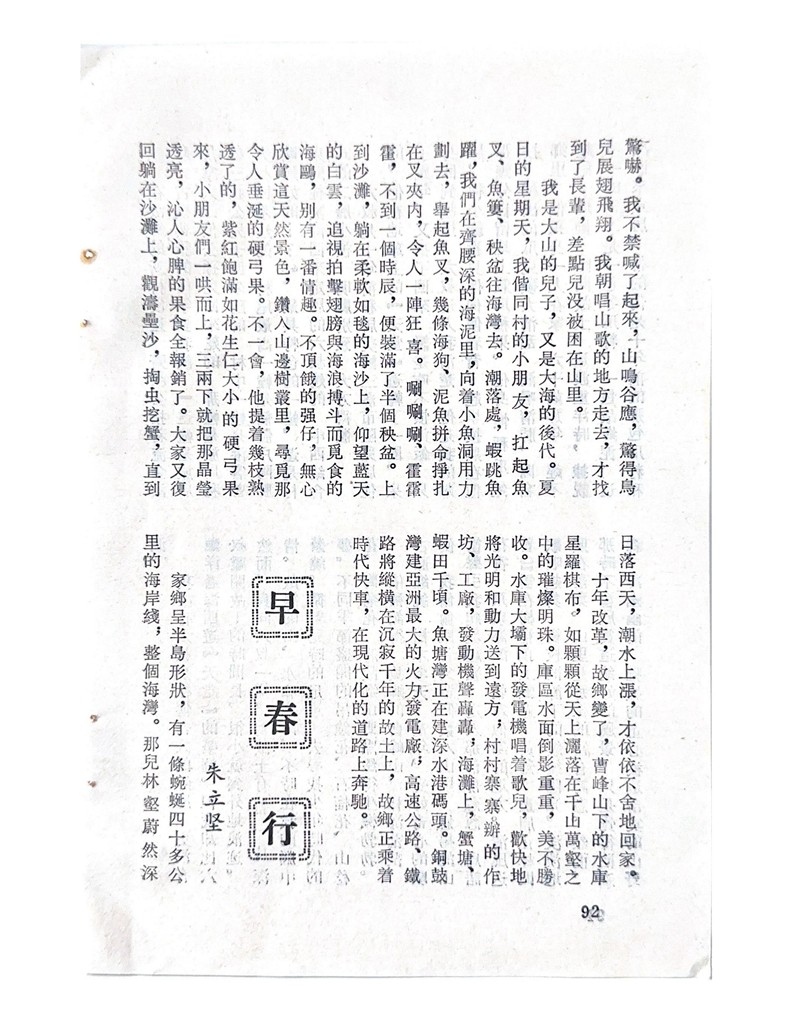 驚嚇。我不禁喊了起來，山鳴谷應，驚得鳥
兒展翅飛翔。我朝唱山歌的地方走去，才找
到了長輩，差點兒没被困在山里。
我是大山的兒子，又是大海的後代。夏
日的星期天，我偕同村的小朋友，扛起魚
叉、魚簍、秧盆往海灣去。潮落處，蝦跳魚
躍，我們在齊腰深的海泥里，向着小魚洞用力
劃去，舉起魚叉，幾條海狗、泥魚拼命掙扎
在叉夾内，令人一陣狂喜。唰唰唰、霍霍
霍，不到一個時辰，便裝滿了半個秧盆。上
到沙灘，躺在柔軟如毯的海沙上，仰望藍天
的白雲，追視拍擊翅膀與海浪搏斗而覓食的
海鷗，别有一番情趣。不頂餓的强仔，無心
欣賞這天然景色，鑽入山邊樹叢里，尋覓那
令人垂涎的硬弓果。不一會，他提着幾枝熟
透了的，紫紅飽滿如花生仁大小的硬弓果
來，小朋友們一哄而上，三兩下就把那晶瑩
透亮，沁人心脾的果食全報銷了。大家又復
回躺在沙灘上，觀濤壘沙，掏虫挖蟹，直到
日落西天，潮水上漲，才依依不舍地回家。
十年改革，故鄉變了，曹峰山下的水庫
星羅棋布，如顆顆從天上灑落在千山萬壑之
中的璀燦明珠。庫區水面倒影重重，美不勝
收。水庫大壩下的發電機唱着歌兒，歡快地
將光明和動力送到遠方，村村寨寨辦的作
坊、工廠，發動機聲轟轟，海灘上，蟹塘、
蝦田千頃。魚塘灣正在建深水港碼頭。銅鼓
灣建亞洲最大的火力發電廠，高速公路、鐵
路將縱横在沉寂千年的故土上，故鄉正乘着
時代快車，在現代化的道路上奔馳。
早春行
朱立坚
家鄉呈半島形狀，有一條蜿蜒四十多公
里的海岸綫，整個海灣。那兒林壑蔚然深
92